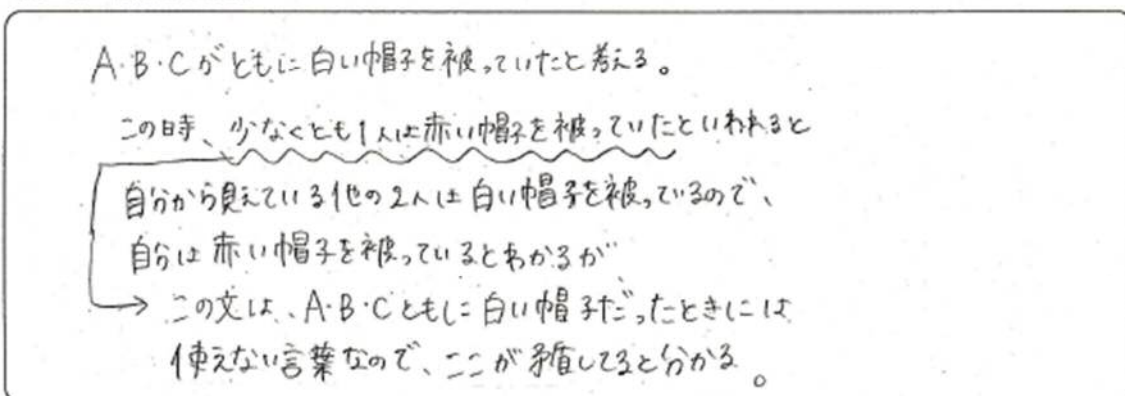 A・B・Cがともに白い帽子を被っていたと考える。
この時、少なくとも1人は赤い帽子を被っていたといわれると
自分から見えている他の2人は白い帽子を被っているので、
自分は赤い帽子を被っているとわかるが
この文は、A・B・Cともに白い帽子だったときには
使えない言葉なので、ここが矛盾してると分かる。